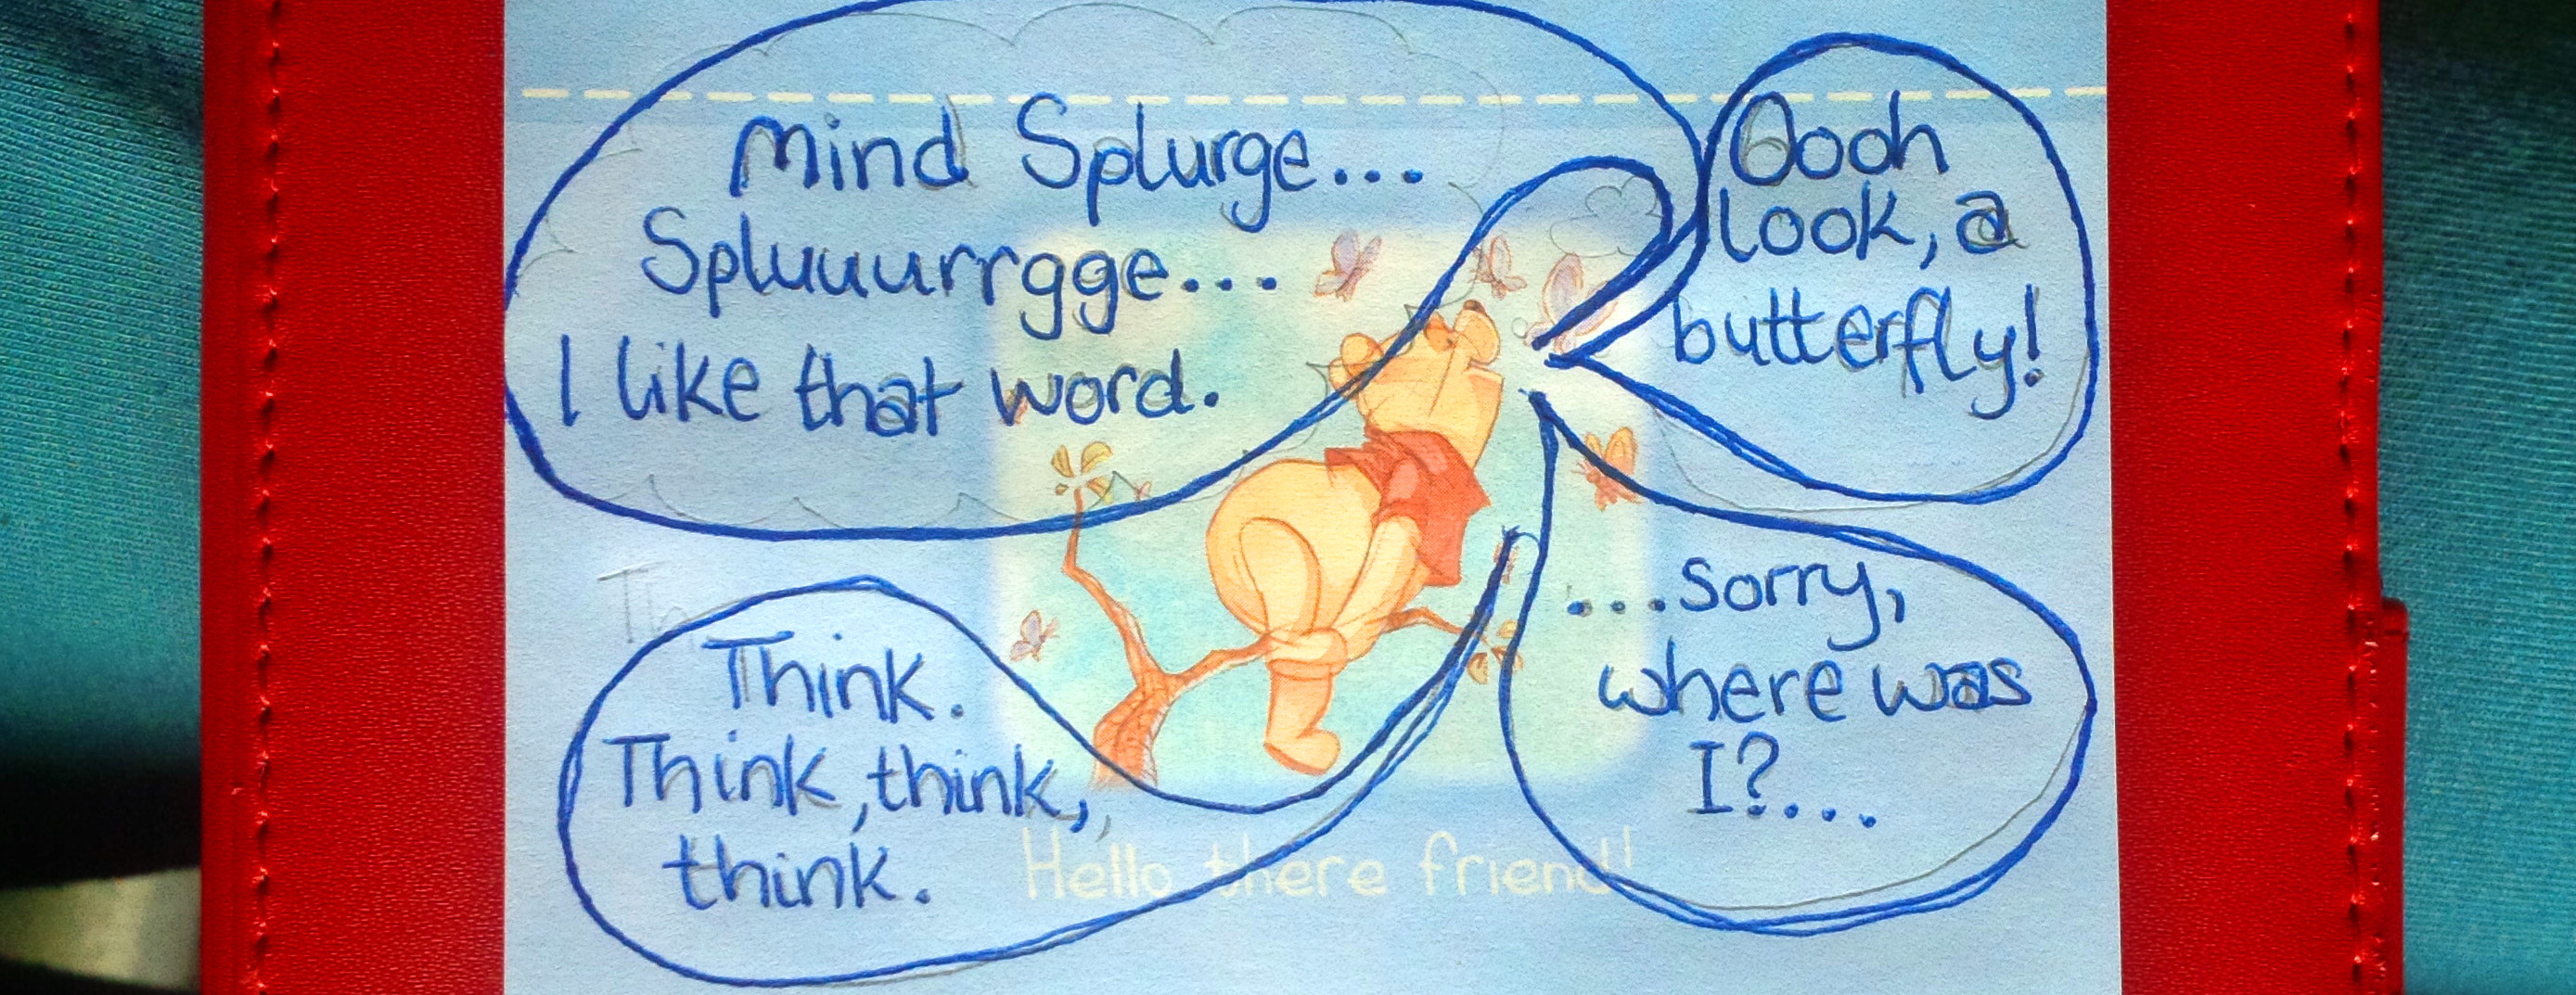 Mind Splurge...
Spluuurrgge...
I like that word.
Oooh
look, a
butterfly!
...sorry,
where was
I?...
Think.
Think, think,
think.
Hello there friend!